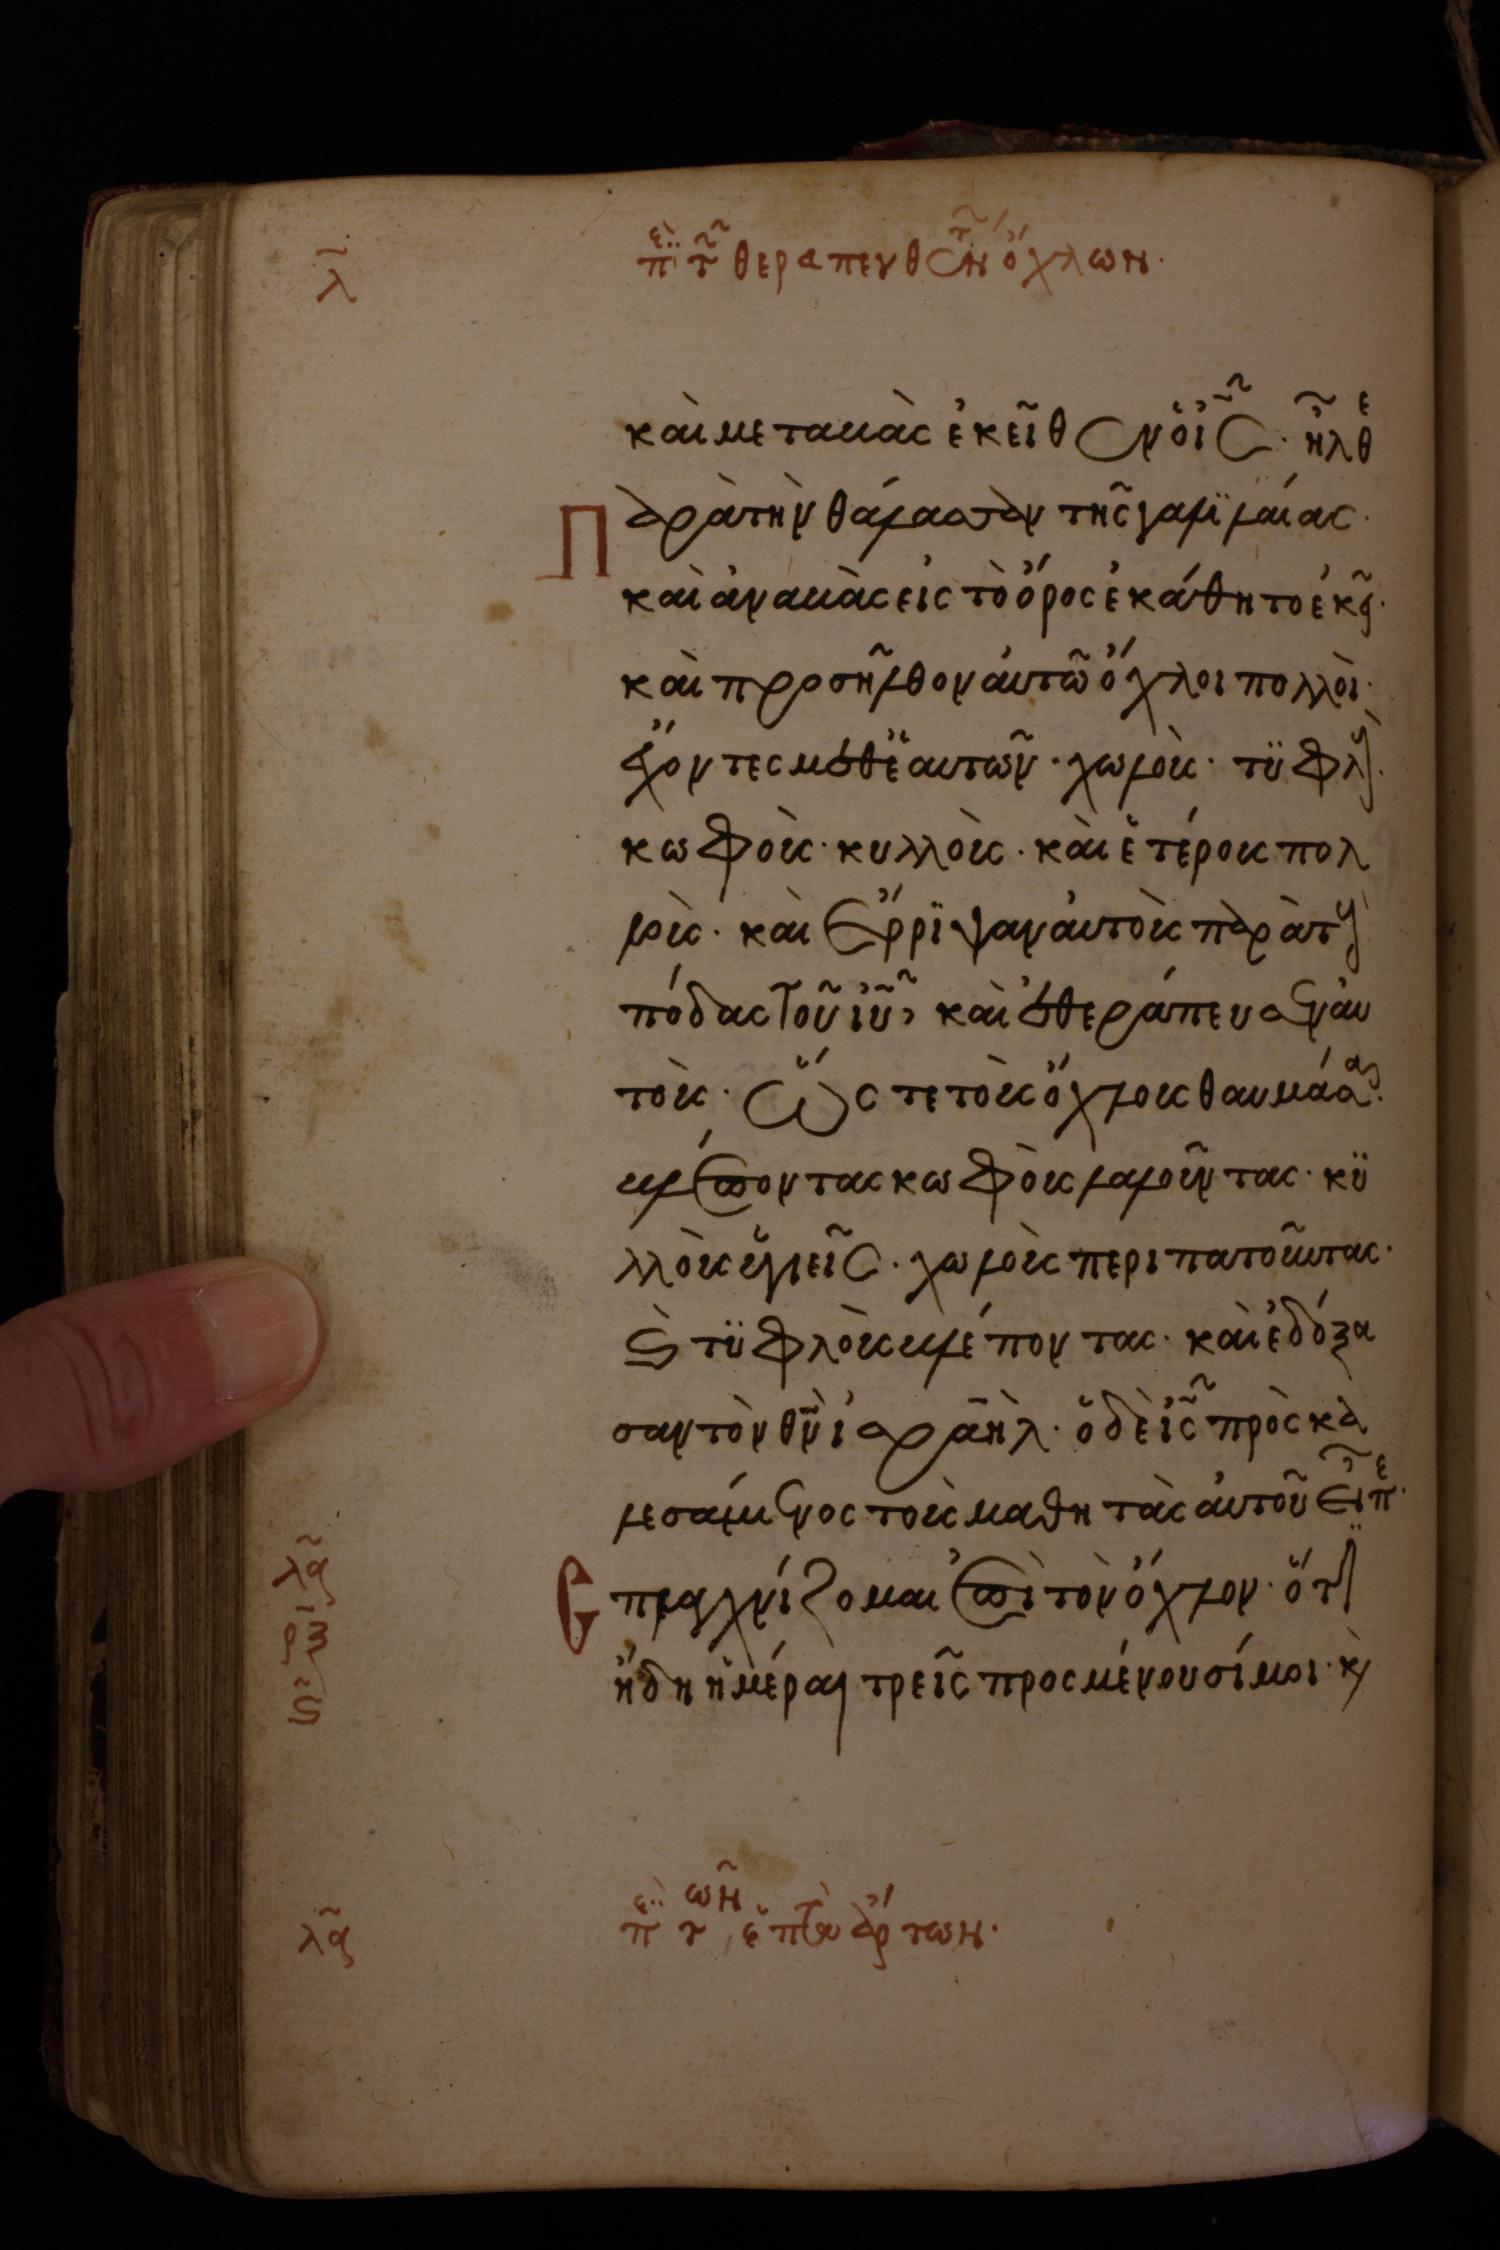 λ̄
ἐπὶ τῶν θεραπευθέντων ὄχλων.
καὶ μεταβὰς ἐκεῖθεν ὁ ἰς̄. ἦλθε
Παρὰ τὴν θάλασσαν τῆς γαλϊλαίας.
καὶ ἀναβὰς εἰς τὸ ὄρος ἐκάθητο ἐκεῖ.
καὶ προσῆλθον αὐτῶ ὄχλοι πολλοὶ.
ἔχοντες μεθ' ἑαυτῶν. χωλοὺς. τϋφλοὺς.
κωφοὺς. κυλλοὺς. καὶ ἑτέρους πολ
λοὺς. καὶ ἔρρϊψαν αὐτοὺς παρὰ τοὺς
πόδας τοῦ ιῡ, καὶ ἐθεράπευσεν αὐ
τοὺς. ὥστε τοὺς ὄχλους θαυμάσαι.
βλέποντας κωφοὺς λαλοῦντας. κϋ
λλοὺς ὑγιεῖς. χωλοὺς περιπατοῦντας.
καὶ τϋφλοὺς βλέποντας. καὶ ἐδόξα
σαν τὸν θν̄ ἰσραήλ. ὁ δὲ ις̄ προσκα
λεσάμενος τοὺς μαθητὰς αὐτοῦ εἶπε.
λᾱ
Σπλαγχνίζομαι ἐπὶ τὸν ὄχλον. ὅτι
ρξ̄
ἤδη ἡμέραι τρεῖς προσμένουσί μοι. κὶ
ς̄
λᾱ
ἐπὶ τῶν ἑπτὰ ἄρτων.